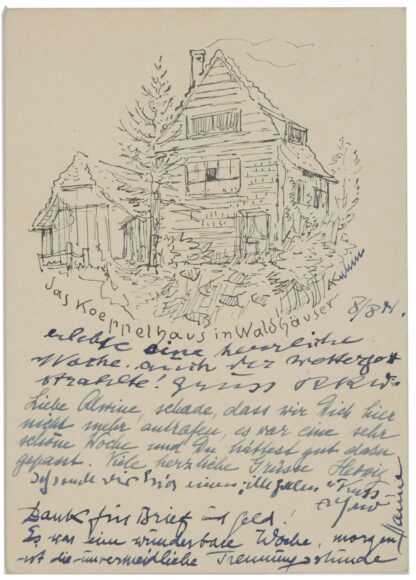 das Koeppelhaus in Waldhäuser
8/8 41.
erlebte eine herrliche
Woche. auch der Wettergott
strahlte! Gruss
Liebe Alwine, schade, dass wir Dich hier
nicht mehr antrafen, es war eine sehr
schöne Woche und Du hättest gut dazu
gepasst. Viele herzliche Grüsse Hedwig
Ich sende Dir einen "illegalen" Kuss
Dank für Brief und Geld!
Es war eine wunderbare Woche, morgen
ist die unvermeidliche Trennungsstunde
Hanna